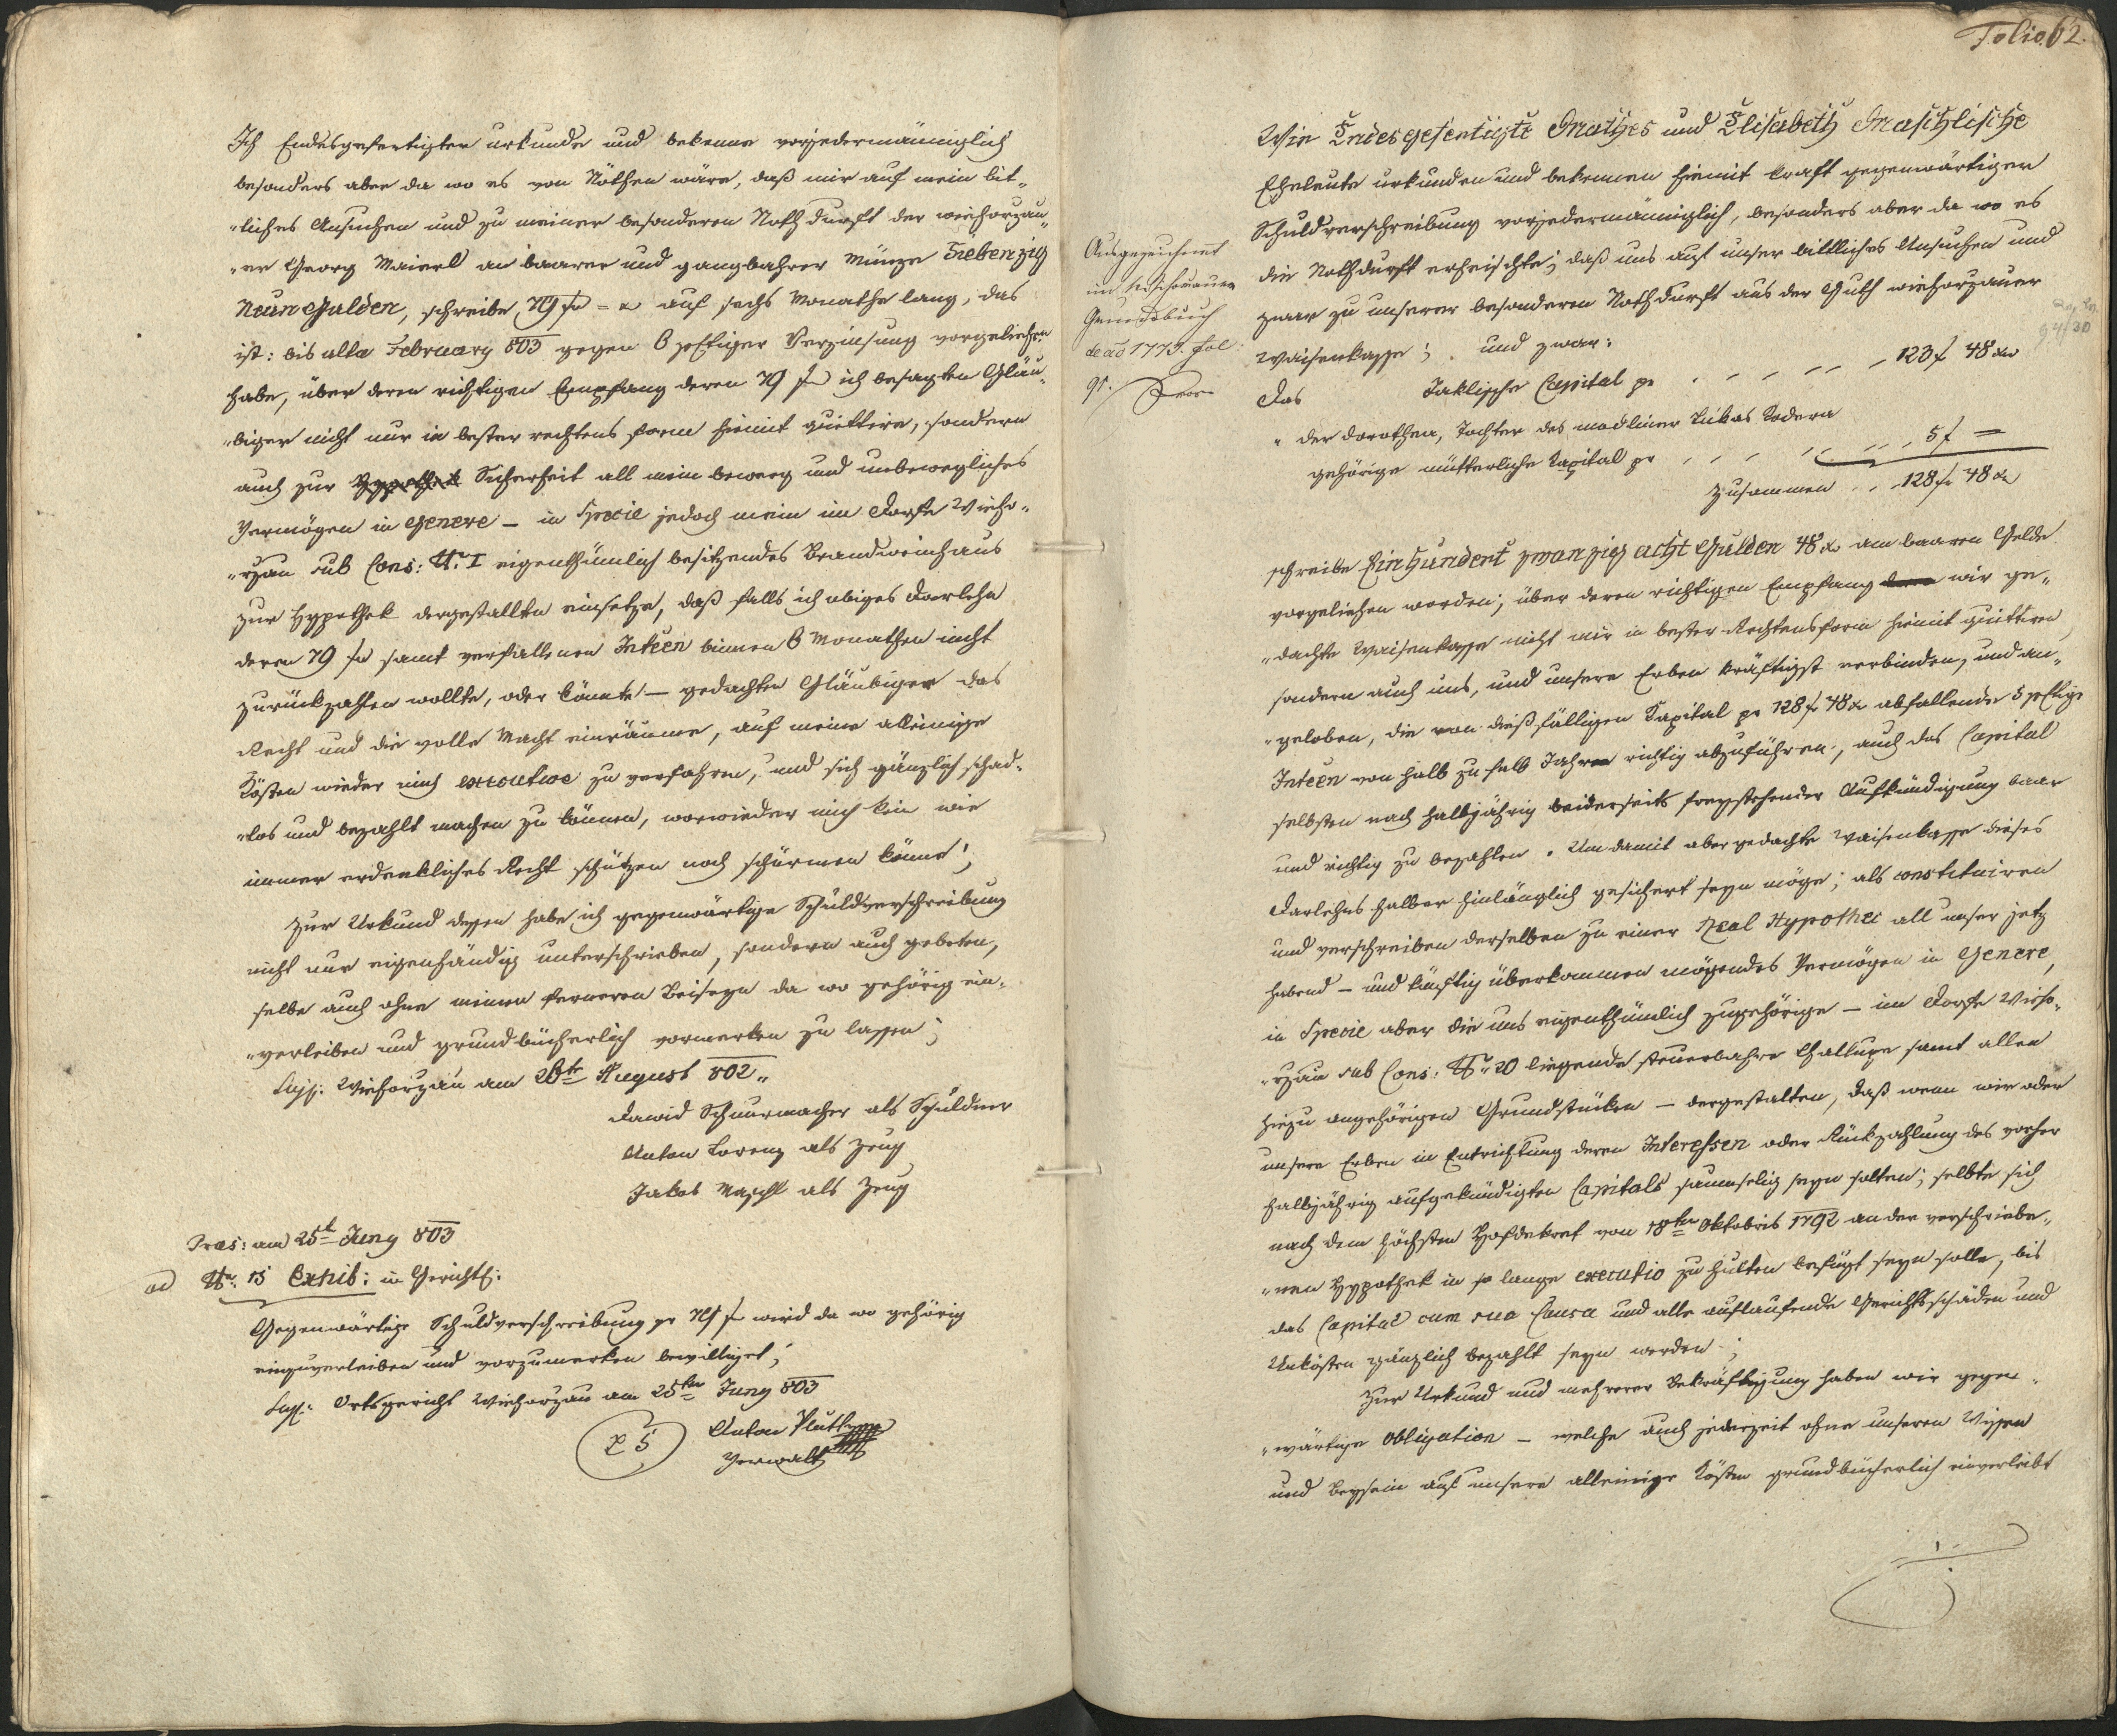 Ich Endesgefertigter urkunde und bekenne vorjedermänniglich
besonders aber da wo es von Nöthen wäre, daß mir auf mein bit„
„liches Ansuchen und zu meiner besonderen Nothdurft der wiehorzau„
„er Georg Maierl an baarer und gangbahrer Münze Siebenzig
Neun Gulden, schreibe 79 f auf sechs Monathe lang, das
ist: bis ulta February 803 gegen 6 pctiger Verzinsung vorgeliehen
habe, über deren richtigen Empfang deren 79 f ich besagten Gläu„
„biger nicht nur in bester rechtens form hiemit quittire, sondern
auch zur Hypothek Sicherheit all mein beweg und unbewegliches
Vermögen in Genere – in Specie jedoch mein im Dorfe Wieho„
„rzau sub Cons: Nr. 1 eigenthümlich besitzendes Brandweinhaus
zur Hypothek dergestallten einsetze, daß falls ich obiges Darlehn
deren 79 f samt verfallenen Inteen binnen 6 Monathen nicht
zurückzahlen wollte, oder könnte – gedachten Gläubiger das
Recht und die volle Macht einräume, auf meine alleinige
Kösten wieder mich executive zu verfahren, und sich gänzlich schad„
„los und bezahlt machen zu können, worwieder mich kein wie
immer erdenkliches Recht schützen noch schürmen könne!,
Zur Urkund dessen habe ich gegenwärtige Schuldverschreibung
nicht nur eigenhändig unterschrieben, sondern auch gebeten,
selbe auch ohne meinen ferneren Beiseyn da wo gehörig ein„
„verleiben und grundbücherlich vormerken zu lassen;
Sig: Wiehorzau am 26t August 802„
David Schnurmacher als Schuldner
Anton Lorenz als Zeug
Jakob Maschl als Zeug
Praes: am 25t Juny 803
ad Nr. 15 Exhib: in Gerichts:
Gegenwärtige Schuldverschreibung pr 79 f wird da wo gehörig
einzuverleiben und vorzumerken bewilliget;
Sig: Ortsgericht Wiehorzau am 25ten Juny 803
L S
Anton
Verwalter
Folio 62.
Wir Endesgefertigte Mathes und Elisabeth Maschlische
Eheleute urkunden und bekennen hiemit kraft gegenwärtiger
Schuldverschreibung vorjedermänniglich, besonders aber da wo es
die Nothdurft erheischte; daß uns auf unser bittliches Ansuchen und
zwar zu unserer besonderen Nothdurft aus der Guth wiehorzauer
Waisenkasse; und zwar:
Das Capital pr 123 f 48 xr
„ der Dorothea, Tochter des madliner Lukas
gehörige mütterliche Kapital pr 5 f =
Zusammen 128 f 48 xr
Ausgezeichnet
im
Grundbuch
de aõ 1773. fol:
91.
schreibe Einhundert zwanzig acht Gulden 48 xr am baaren Gelde
vorgeliehen worden; über deren richtigen Empfang wir ge„
„dachte Waisenkasse nicht nur in bester Rechtensform hiemit quittiren
sondern auch uns, und unsere Erben kräftigst verbinden, und an„
„geloben, die von dießfälligen Kapital pr 128 f 48 xr abfallende 5 pctige
Inteen von halb zu halb Jahr richtig abzuführen, auch das Capital
selbsten nach halbjährig beiderseits freystehender Aufkündigung baar
und richtig zu bezahlen. Um damit aber gedachte Waisenkasse dieses
Darlehns halber hinlänglich gesichert seyn möge; als constituiren
und verschreiben derselben zu einer Real Hypothec all unser jetz
habend – und künftig überkommen mögendes Vermögen in Genere,
in Specie aber die uns eigenthümlich zugehörige – im Dorfe Wieho„
„rzau sub Cons: Nr. 20 liegende steuerbahre Challupe samt allen
hiezu angehörigen Grundstücken – dergestalten, daß wenn wir oder
unsere Erben in Entrichtung deren Interessen oder Rückzahlung des vorher
halbjährig aufgekündigten Capitals saumselig seyn solten; selbte sich
nach dem höchsten Hofdekret von 18ten Oktobris 1792 an der verschriebe„
„nen Hypothek in so lange executio zu halten befugt seyn solle, bis
das Capital cum sua Causa und alle auflaufende Gerichtsschäden und
Unkösten gänzlich bezahlt seyn werden;
Zur Urkund und mehrerer Bekräftigung haben wir gegen„
„wärtige Obligation – welche auch jederzeit ohne unseren Wissen
und Beysein auf unsere alleinige Kösten grundbücherlich einverleibt